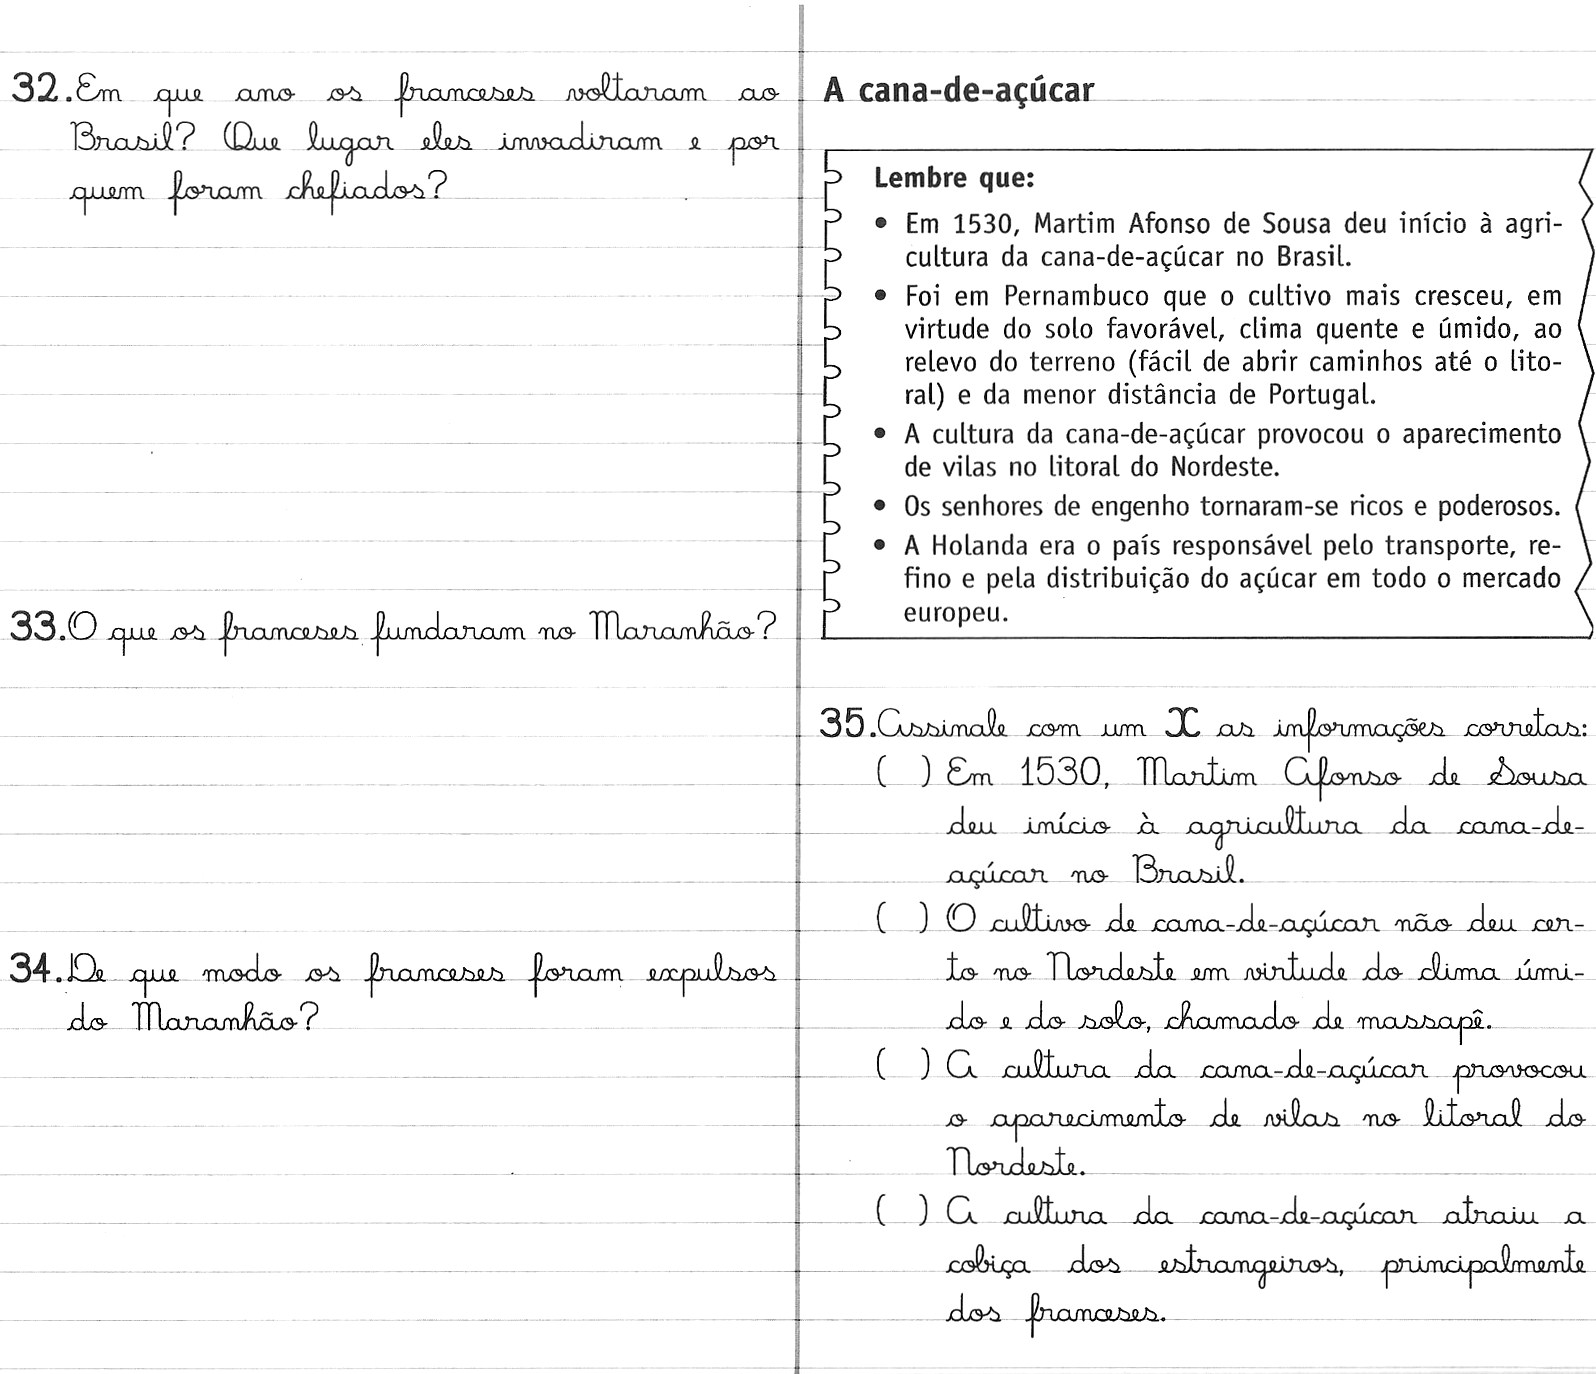 32. Em que ano os franceses voltaram ao
Brasil? Que lugar eles invadiram e por
quem foram chefiados?
33. O que os franceses fundaram no Maranhão?
34. De que modo os franceses foram expulsos
do Maranhão?
A cana-de-açúcar
Lembre que:
• Em 1530, Martim Afonso de Sousa deu início à agri-
cultura da cana-de-açúcar no Brasil.
• Foi em Pernambuco que o cultivo mais cresceu, em
virtude do solo favorável, clima quente e úmido, ao
relevo do terreno (fácil de abrir caminhos até o lito-
ral) e da menor distância de Portugal.
• A cultura da cana-de-açúcar provocou o aparecimento
de vilas no litoral do Nordeste.
• Os senhores de engenho tornaram-se ricos e poderosos.
• A Holanda era o país responsável pelo transporte, re-
fino e pela distribuição do açúcar em todo o mercado
europeu.
35. Assinale com um X as informações corretas:
( ) Em 1530, Martim Afonso de Sousa
deu início à agricultura da cana-de-
açúcar no Brasil.
( ) O cultivo de cana-de-açúcar não deu cer-
to no Nordeste em virtude do clima úmi-
do e do solo, chamado de massapê.
( ) A cultura da cana-de-açúcar provocou
o aparecimento de vilas no litoral do
Nordeste.
( ) A cultura da cana-de-açúcar atraiu a
cobiça dos estrangeiros, principalmente
dos franceses.